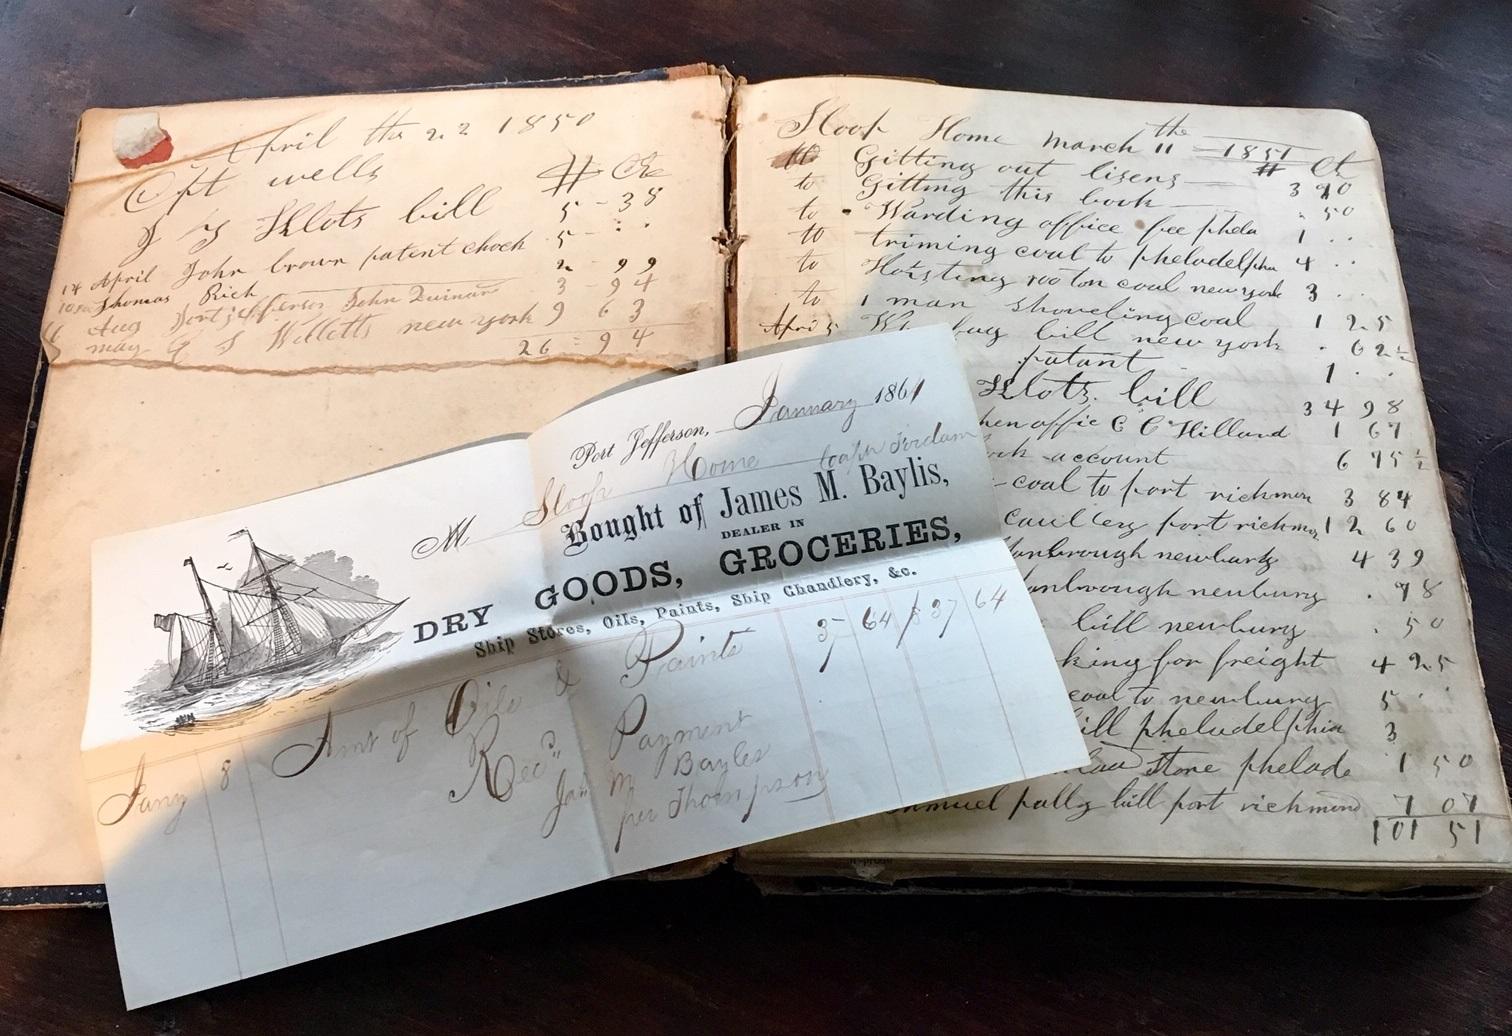 April the 22 1850
Cpt wells # Cts
J Y Klots bill 5 - 38
14 April John brown patent chock 5 - . .
Thomas Rich 2 - 99
Aug Port jefferson John 3 - 94
may G S Willetts new york 9 63
26 = 94
Sloop Home March the 11 1851
to Gitting out lisens # Ct 3 90
to Gitting this book . 50
to Warding office fee phela 1 . .
to triming coal to pheladelphia 4 . .
to Hoisting 100 ton coal new york 3 . .
to 1 man shoveling coal 1 25
April 5 bill new york . 62½
patant 1 . .
Klots bill 34 98
offic C C Hilland 1 67
account 6 75½
coal to port richmon 3 84
port richmon 12 60
newburg 4 39
newburg . 98
bill newburg . 50
king for freight 4 25
coal to newburg 5 . .
ill pheladelphia 3
Store phelade 1 50
bill port richmond 7 07
101 51
Port Jefferson, January 1861
M Sloop Home
Bought of James M. Baylis,
DEALER IN
DRY GOODS, GROCERIES,
Ship Stores, Oils, Paints, Ship Chandlery, &c.
Jany 8 Amt of Oils & Paints 37 64 $37 64
Recd Payment
Jas M Bayles
per Thompson